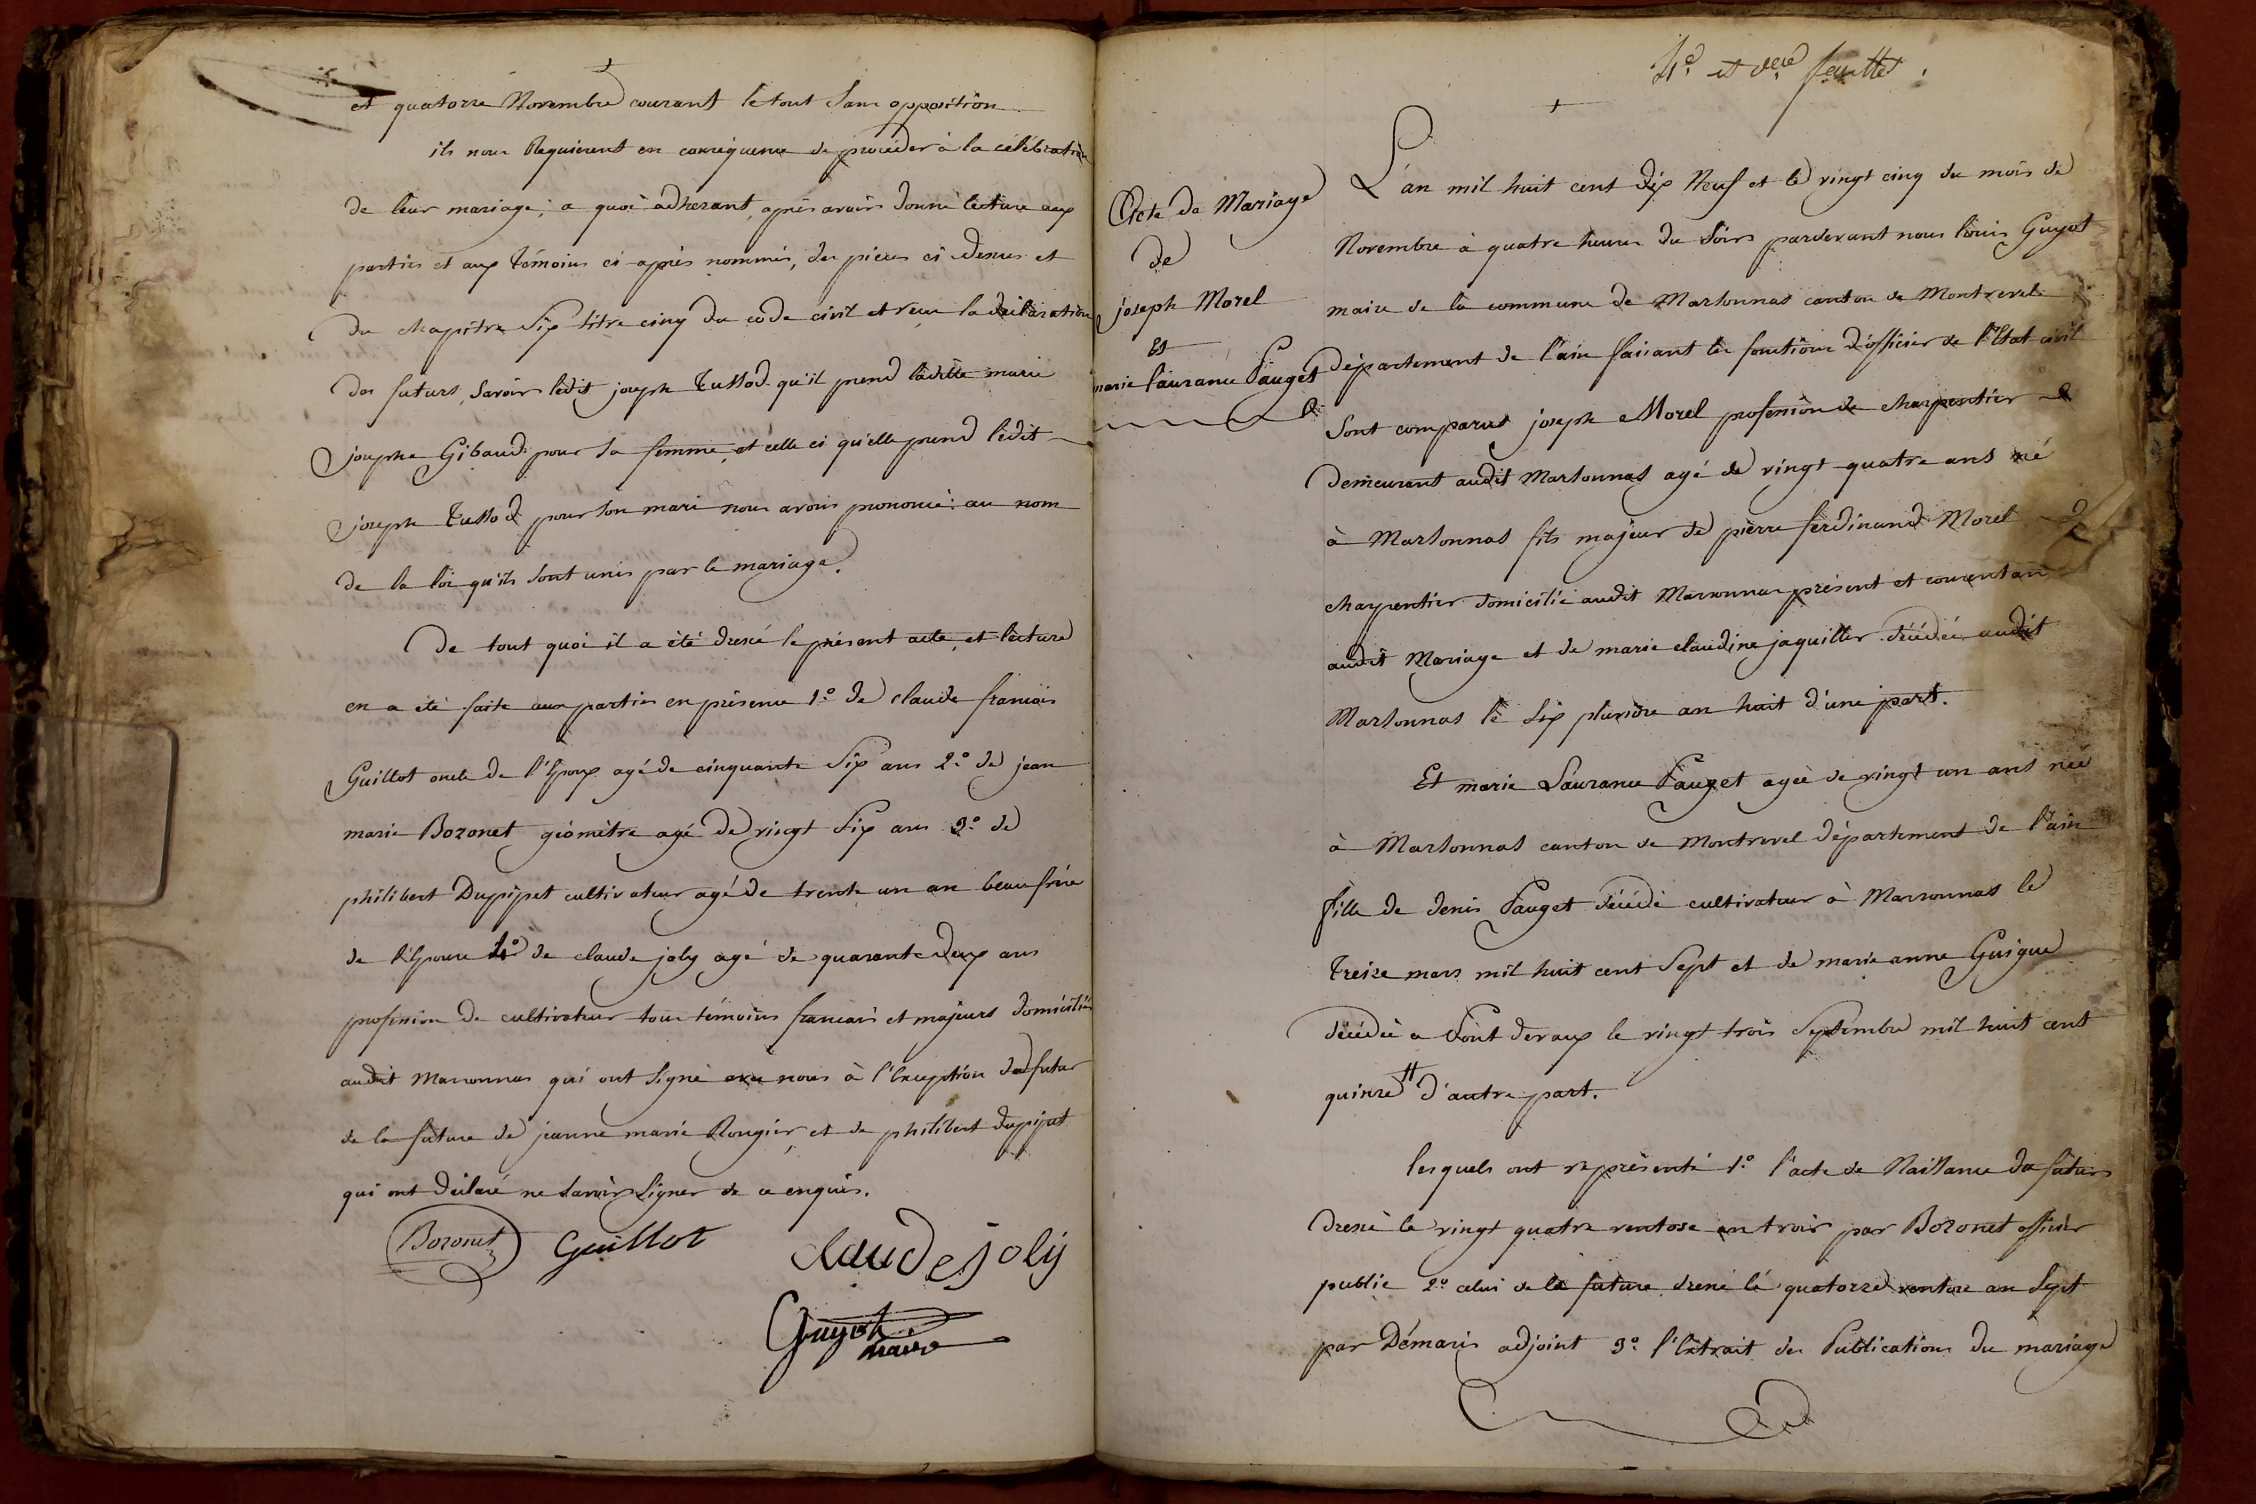 et quatorze Novembre courant le tout sans opposition
ils nous Requierent en consequence de proceder à la célébration
de leur mariage; a quoi adherant, après avoir donné lecture aux
parties et aux témoins ci-après nommés, des pièces ci-dessus et
du chapitre Six titre cinq du code civil et recu la déclaration
des futurs, Savoir ledit joseph Tussod qu'il prend ladite marie
josephe Gibaud pour sa femme, et celle ci qu'elle prend ledit
joseph Tussod pour son mari nous avons prononcé: au nom
de la loi qu'ils sont unis par le mariage.
De tout quoi il a été dressé le présent acte, et lecture
en a été faite aux parties en présence 1.° de claude francois
Guillot oncle de l'Epoux agé de cinquante Six ans 2.° de jean
marie Bozonet géomètre agé de vingt Six ans 3.° de
philibert Dupipet cultivateur agé de trente un an beau frère
de l'Epouse 4.° de claude joly agé de quarante deux ans
profession de cultivateur tous témoins francais et majeurs domiciliés
audit Marsonnas qui ont Signé avec nous à l'Exception du futur
de la future de jeanne marie Rougier, et de philibert dupipet
qui ont déclaré ne Savoir Signer de ce enquis.
Bozonet Guillot claude joly
Guyot
maire
4.e et der.e feuillet.
Acte de Mariage
de
joseph Morel
Et
marie Laurance Pauget
L'an mil huit cent dix Neuf et le vingt cinq du mois de
Novembre à quatre heures du Soir pardevant nous louis Guyot
maire de la commune de Marsonnas canton de Montrevel
département de l'ain faisant les fonctions d'officier de l'Etat civil
Sont comparus joseph Morel profession de charpentier
demeurant audit Marsonnas agé de vingt quatre ans né
à Marsonnas fils majeur de pierre ferdinand Morel
charpentier domicilié audit Marsonnas présent et consentant
audit Mariage et de marie claudine jaquiller décédée audit
Marsonnas le Six pluviose an huit d'une part.
Et marie Laurance Pauget agée de vingt un ans née
à Marsonnas canton de Montrevel département de l'ain
fille de denis Pauget décédé cultivateur à Marsonnas le
treize mars mil huit cent Sept et de marie anne Guigue
décédée a Pont devaux le vingt trois Septembre mil huit cent
quinze # d'autre part.
lesquels ont représenté 1.° l'acte de Naissance du futur
dressé le vingt quatre ventose an trois par Bozonet officier
public 2.° celui de la future dressé le quatorze ventose an Sept
par Démaris adjoint 3.° l'Extrait des Publications du mariage